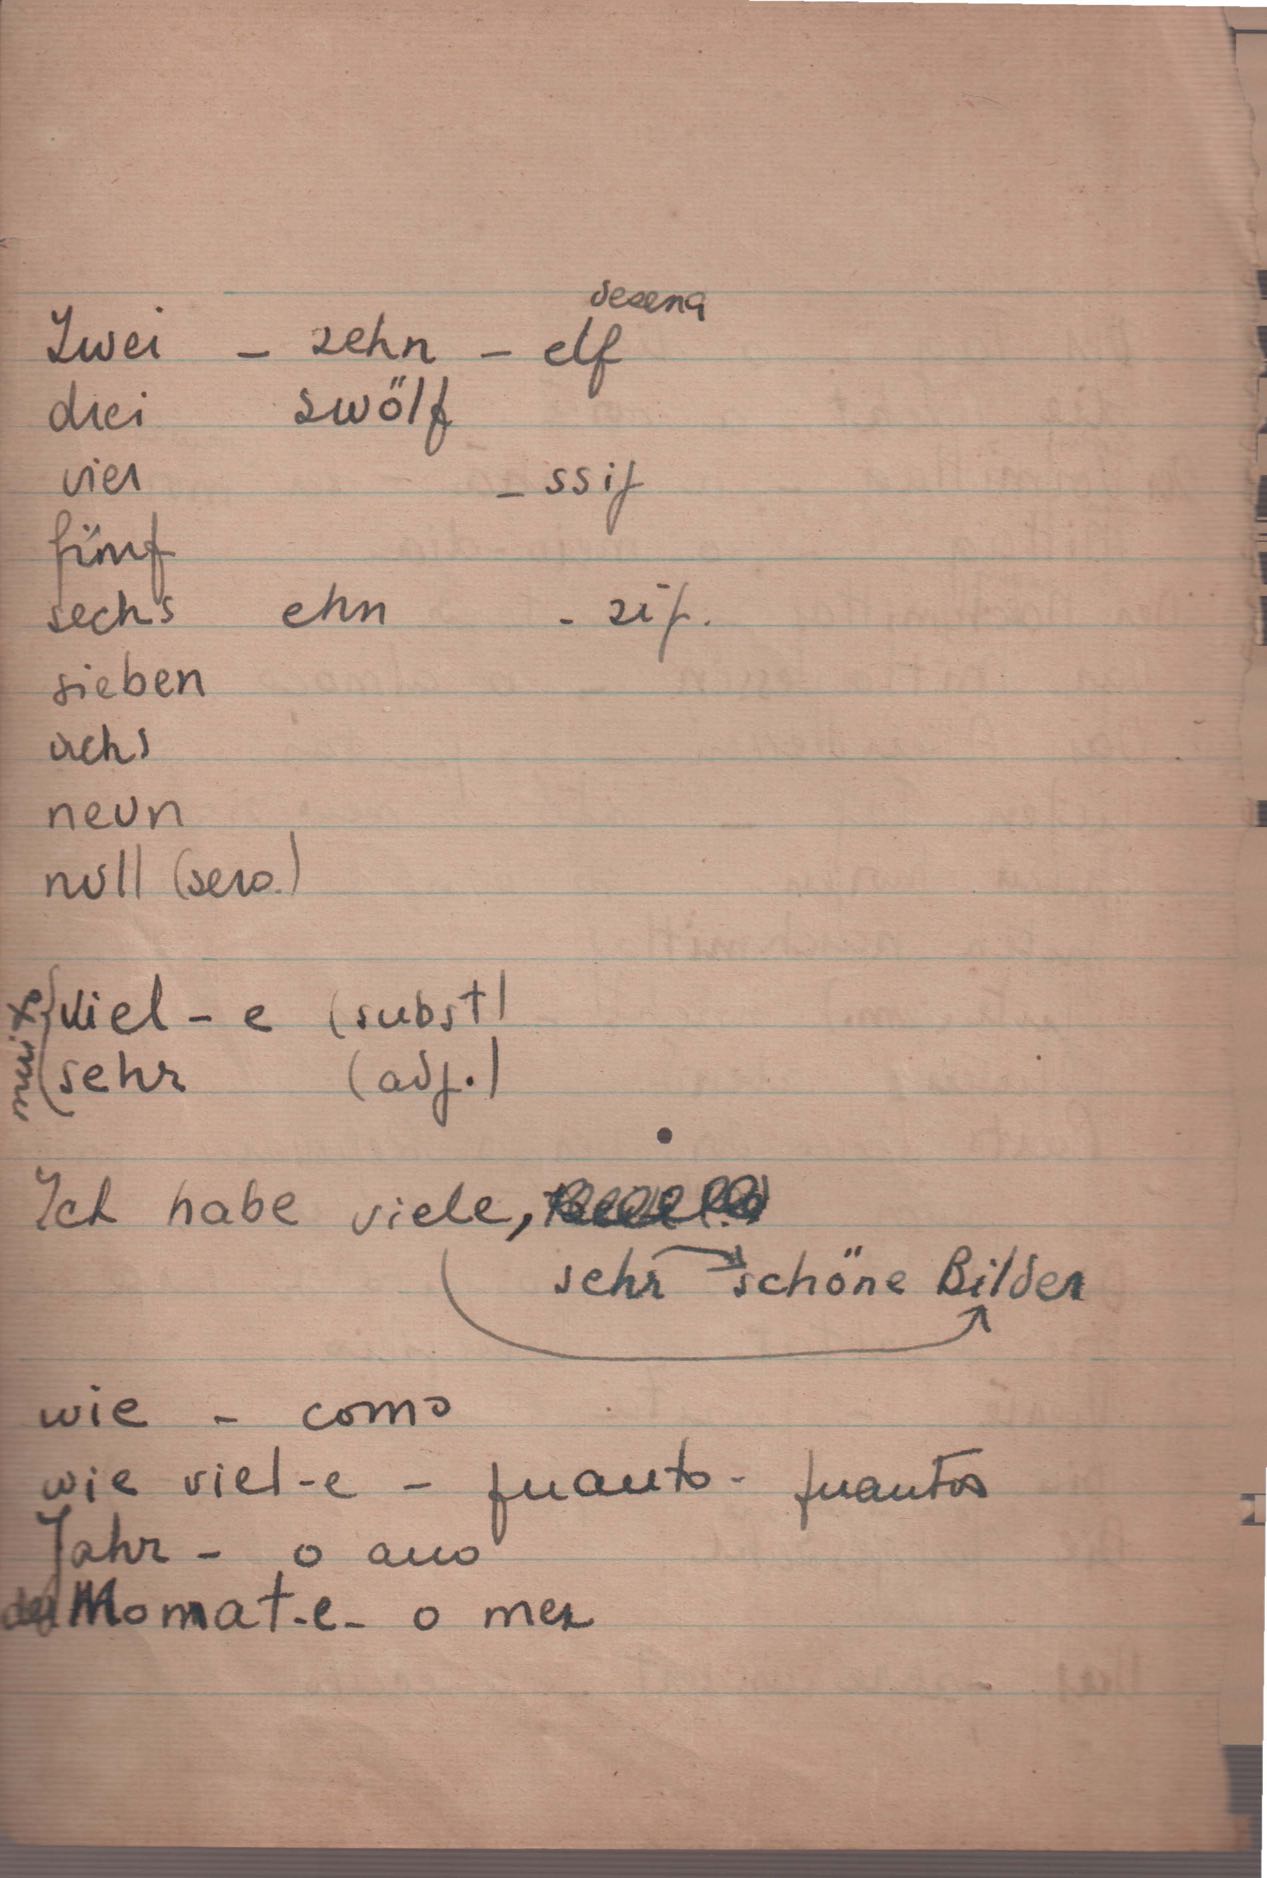 Zwei - zehn - elf
drei zwölf
vier - ssif
fünf
sechs ehn - zif.
sieben
achs
neun
null (sero.)
muito
viel - e (subst)
sehr (adj.)
Ich habe viele,
sehr schöne Bilder
wie - como
wie viel-e - quanto - quantos
Jahr - o ano
der Monat-e - o mez